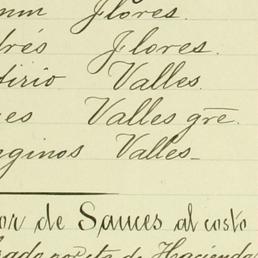 mm Flores.
drés Flores.
tirio Valles.
es Valles gre.
ginos Valles_
or de Sauces al costo
de Hacienda